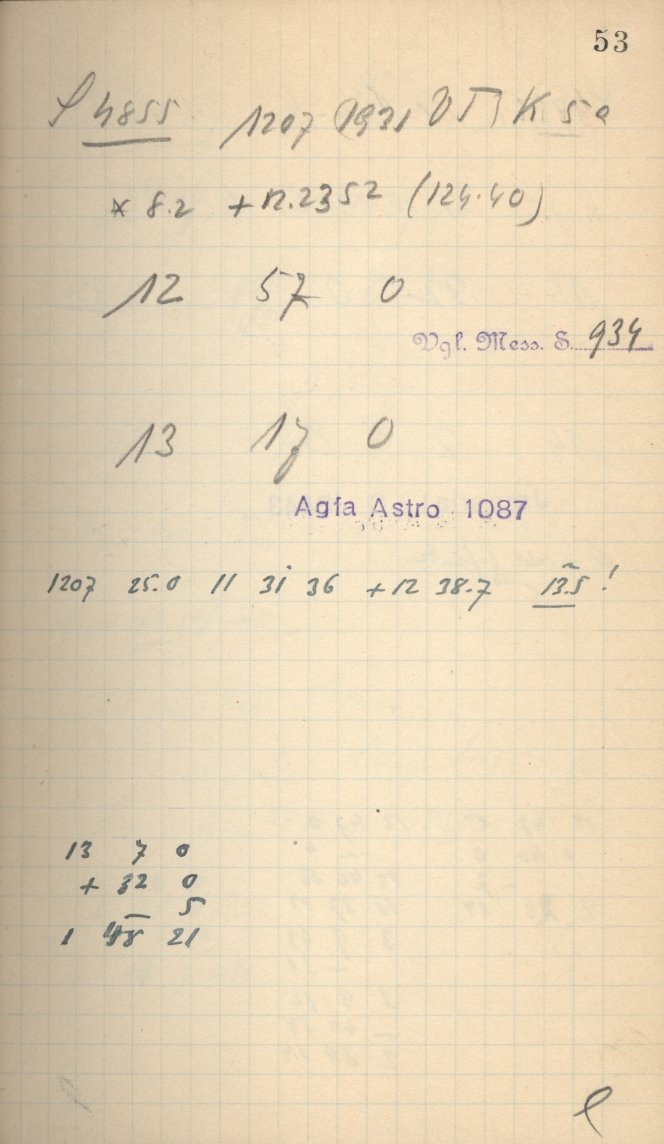 53
P 4855 1207 1931 VI K 5a
* 8.2 + 12.2352 (124.40)
12 57 0
Vgl. Mess. S. 934
13 17 0
Agfa Astro 1087
1207 25.0 11 31 36 + 12 38.7 13.5 !
13 7 0
+ 32 0
5
1 48 21